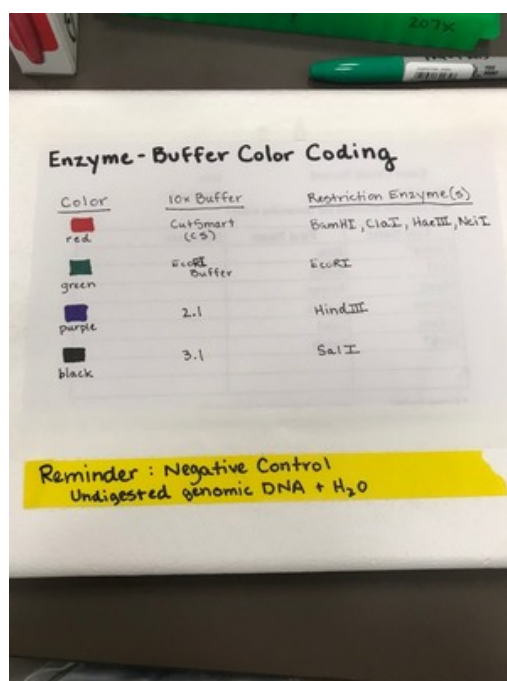 207X
Enzyme - Buffer Color Coding
Color 10x Buffer Restriction Enzyme(s)
red CutSmart (CS) BamHI, ClaI, HaeIII, NciI
green EcoRI Buffer EcoRI
purple 2.1 HindIII
black 3.1 SalI
Reminder : Negative Control
Undigested genomic DNA + H₂O